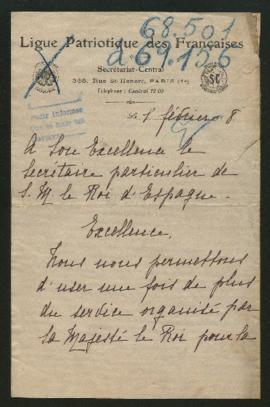 68.501
a 69.156
Ligue Patriotique des Françaises
Secrétariat-Central
368, Rue St-Honoré, PARIS (1er)
Téléphone : Central 72 09
SC
1 février 8
A Son Excellence le
Secrétaire particulier de
S. M. le Roi d'Espagne.
Excellence,
Nous nous permettons
d'user une fois de plus
du service organisé par
Sa Majesté le Roi pour la